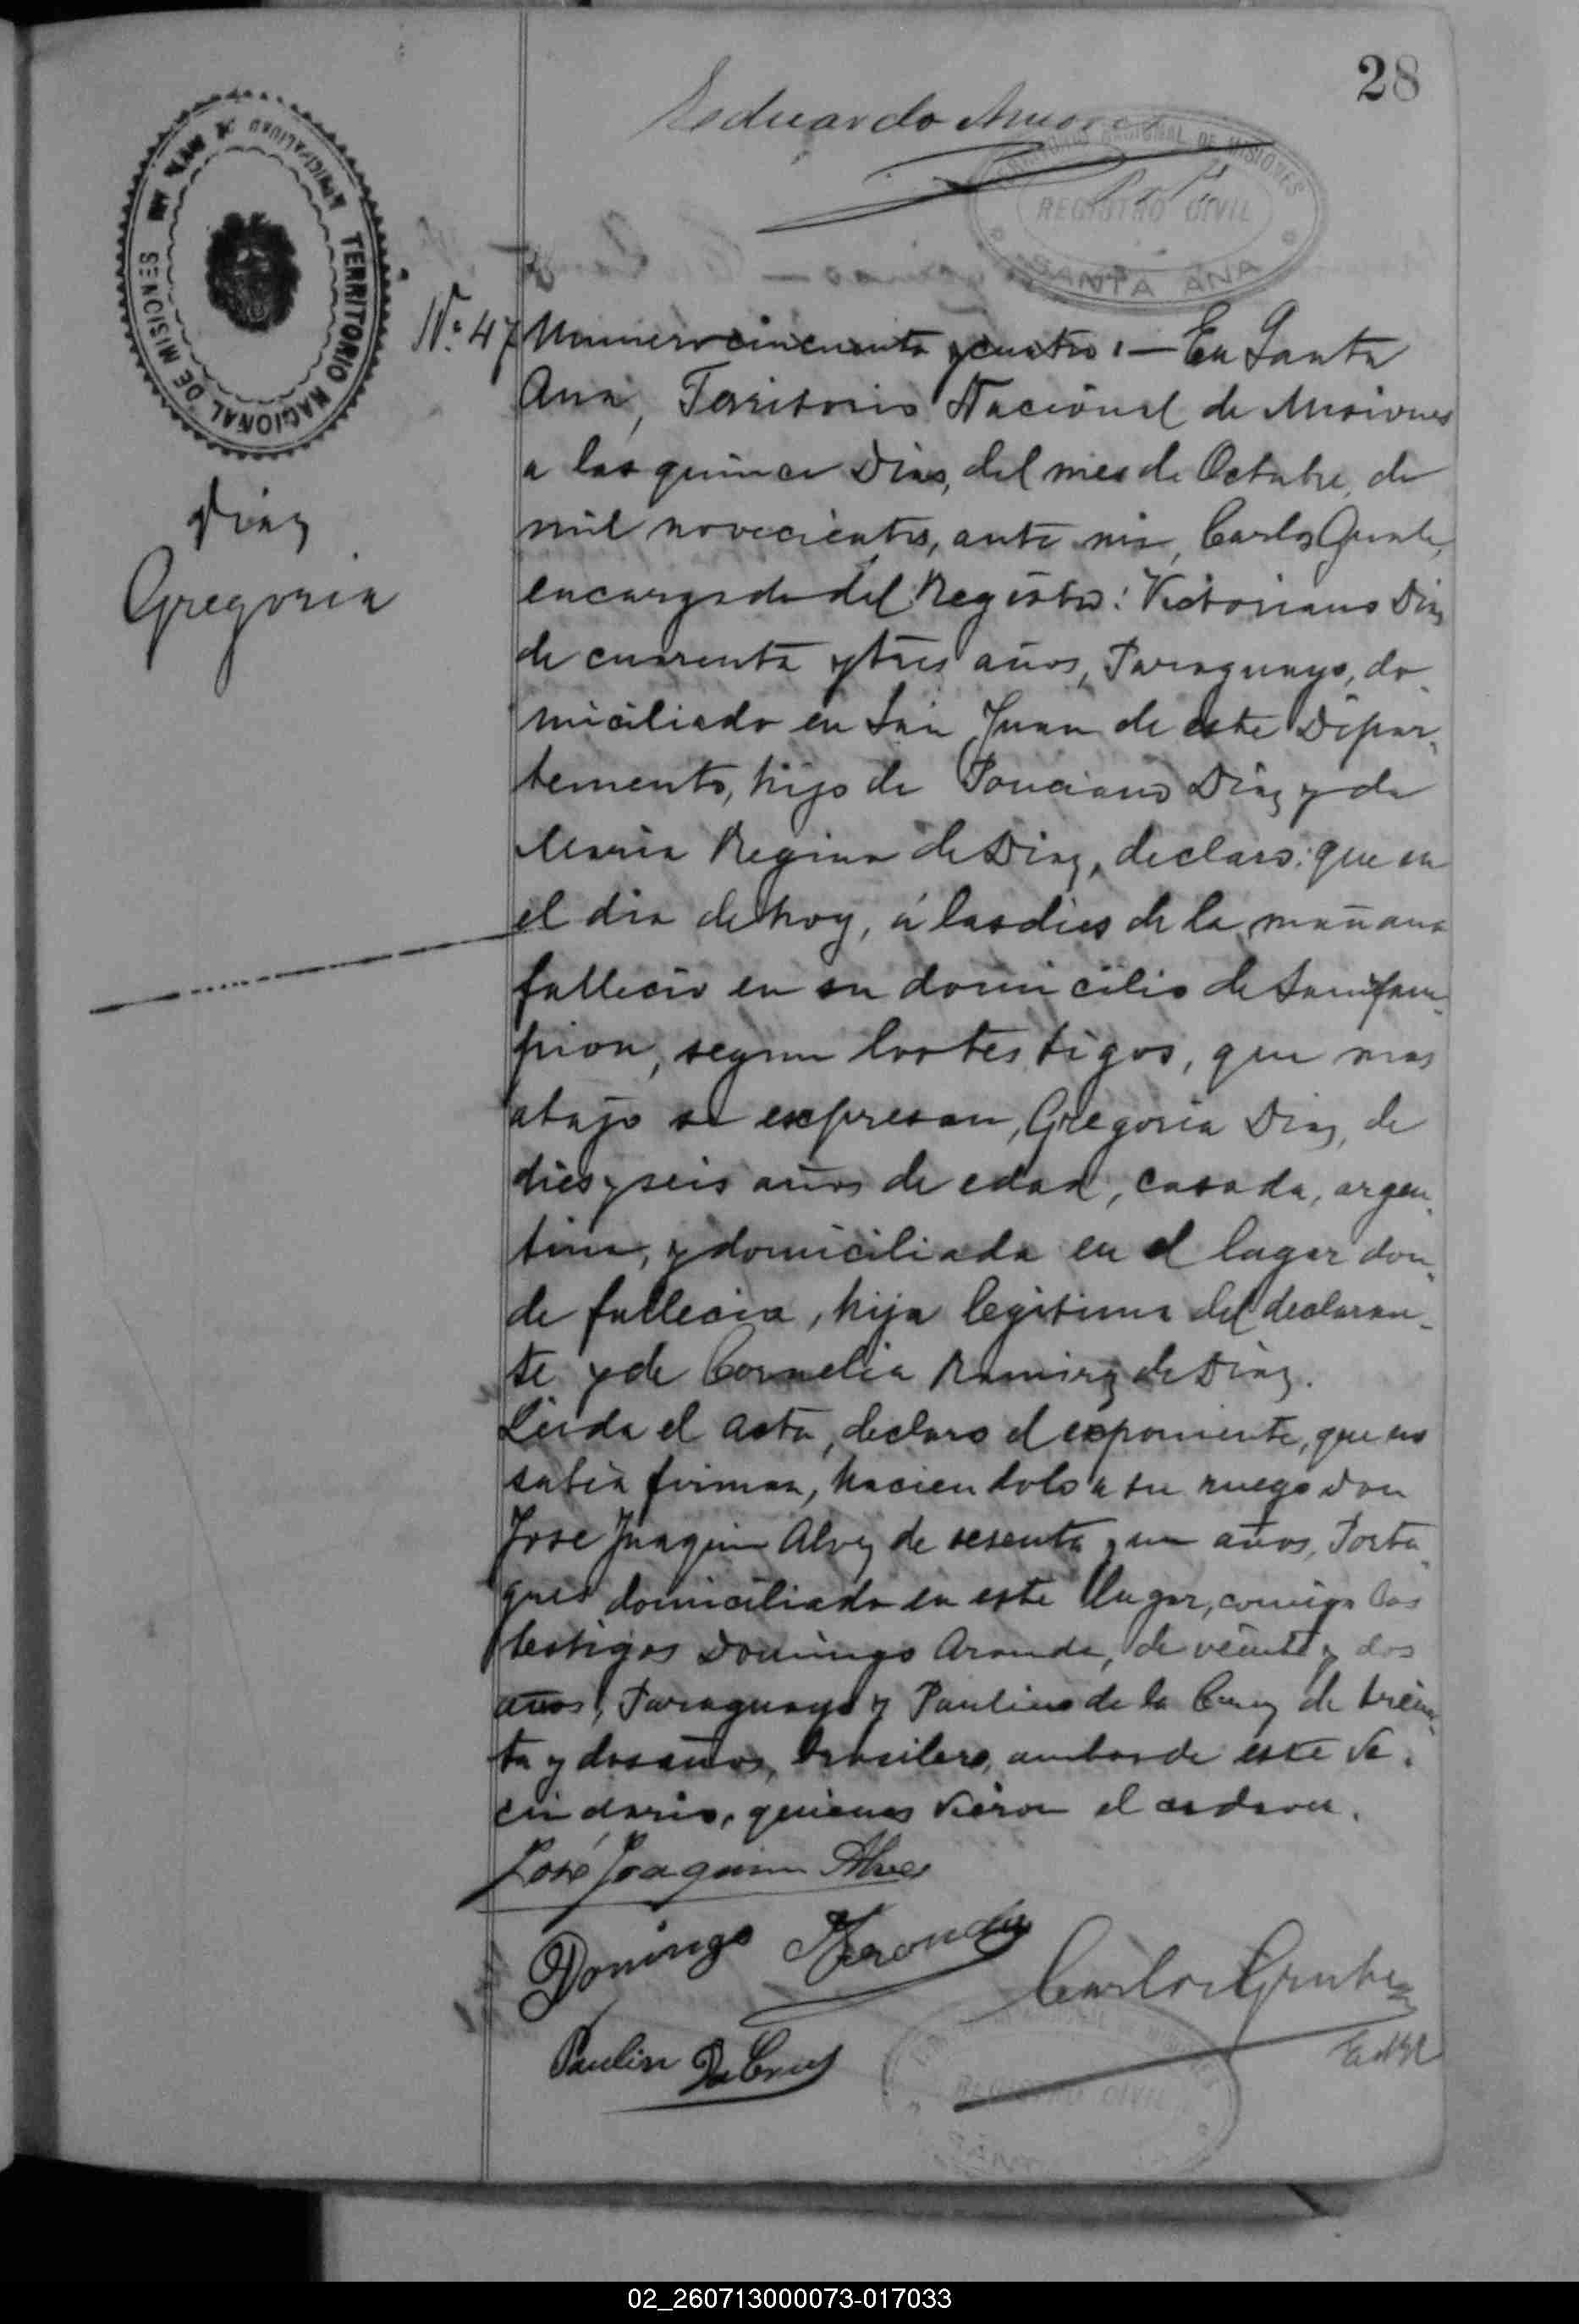 28
Eduardo Munos
TERRITORIO NACIONAL DE MISIONES
REGISTRO CIVIL
SANTA ANA
MUNICIPALIDAD DE SANTA ANA
TERRITORIO NACIONAL DE MISIONES
Diaz
Gregoria
Nº 47 Numero cincuenta y cuatro: — En Santa
Ana, Territorio Nacional de Misiones
a los quince dias, del mes de Octubre, de
mil novecientos, ante mi, Carlos Gruber,
encargado del Registro: Victoriano Diaz
de cuarenta y tres años, Paraguayo, do-
miciliado en San Juan de este Depar-
tamento, hijo de Ponciano Diaz y de
Maria Regina de Diaz, declaro: que en
el dia de hoy, á las dies de la mañana
fallecio en su domicilio de saram-
pion, segun los testigos, que mas
abajo se expresan, Gregoria Diaz, de
dies y seis años de edad, casada, argen-
tina, y domiciliada en el lugar don-
de fallecia, hija legitima del declaran-
te y de Cornelia Ramirez de Diaz.
Leida el acta, declaro el exponente, que no
sabia firmar, haciendolo a su ruego don
Jose Juaquin Alvez de sesenta y un años, Portu-
gues domiciliado en este lugar, conmigo los
testigos Domingo Aranda, de veinte y dos
años, Paraguayo y Paulino de la Cruz de trein-
ta y dos años, brasilero, ambos de este ve-
cindario, quienes vieron el cadaver.
José Joaquim Alves
Domingo Aranda
Carlos Gruber
Paulin Da Cruz
REGISTRO CIVIL
02_260713000073-017033